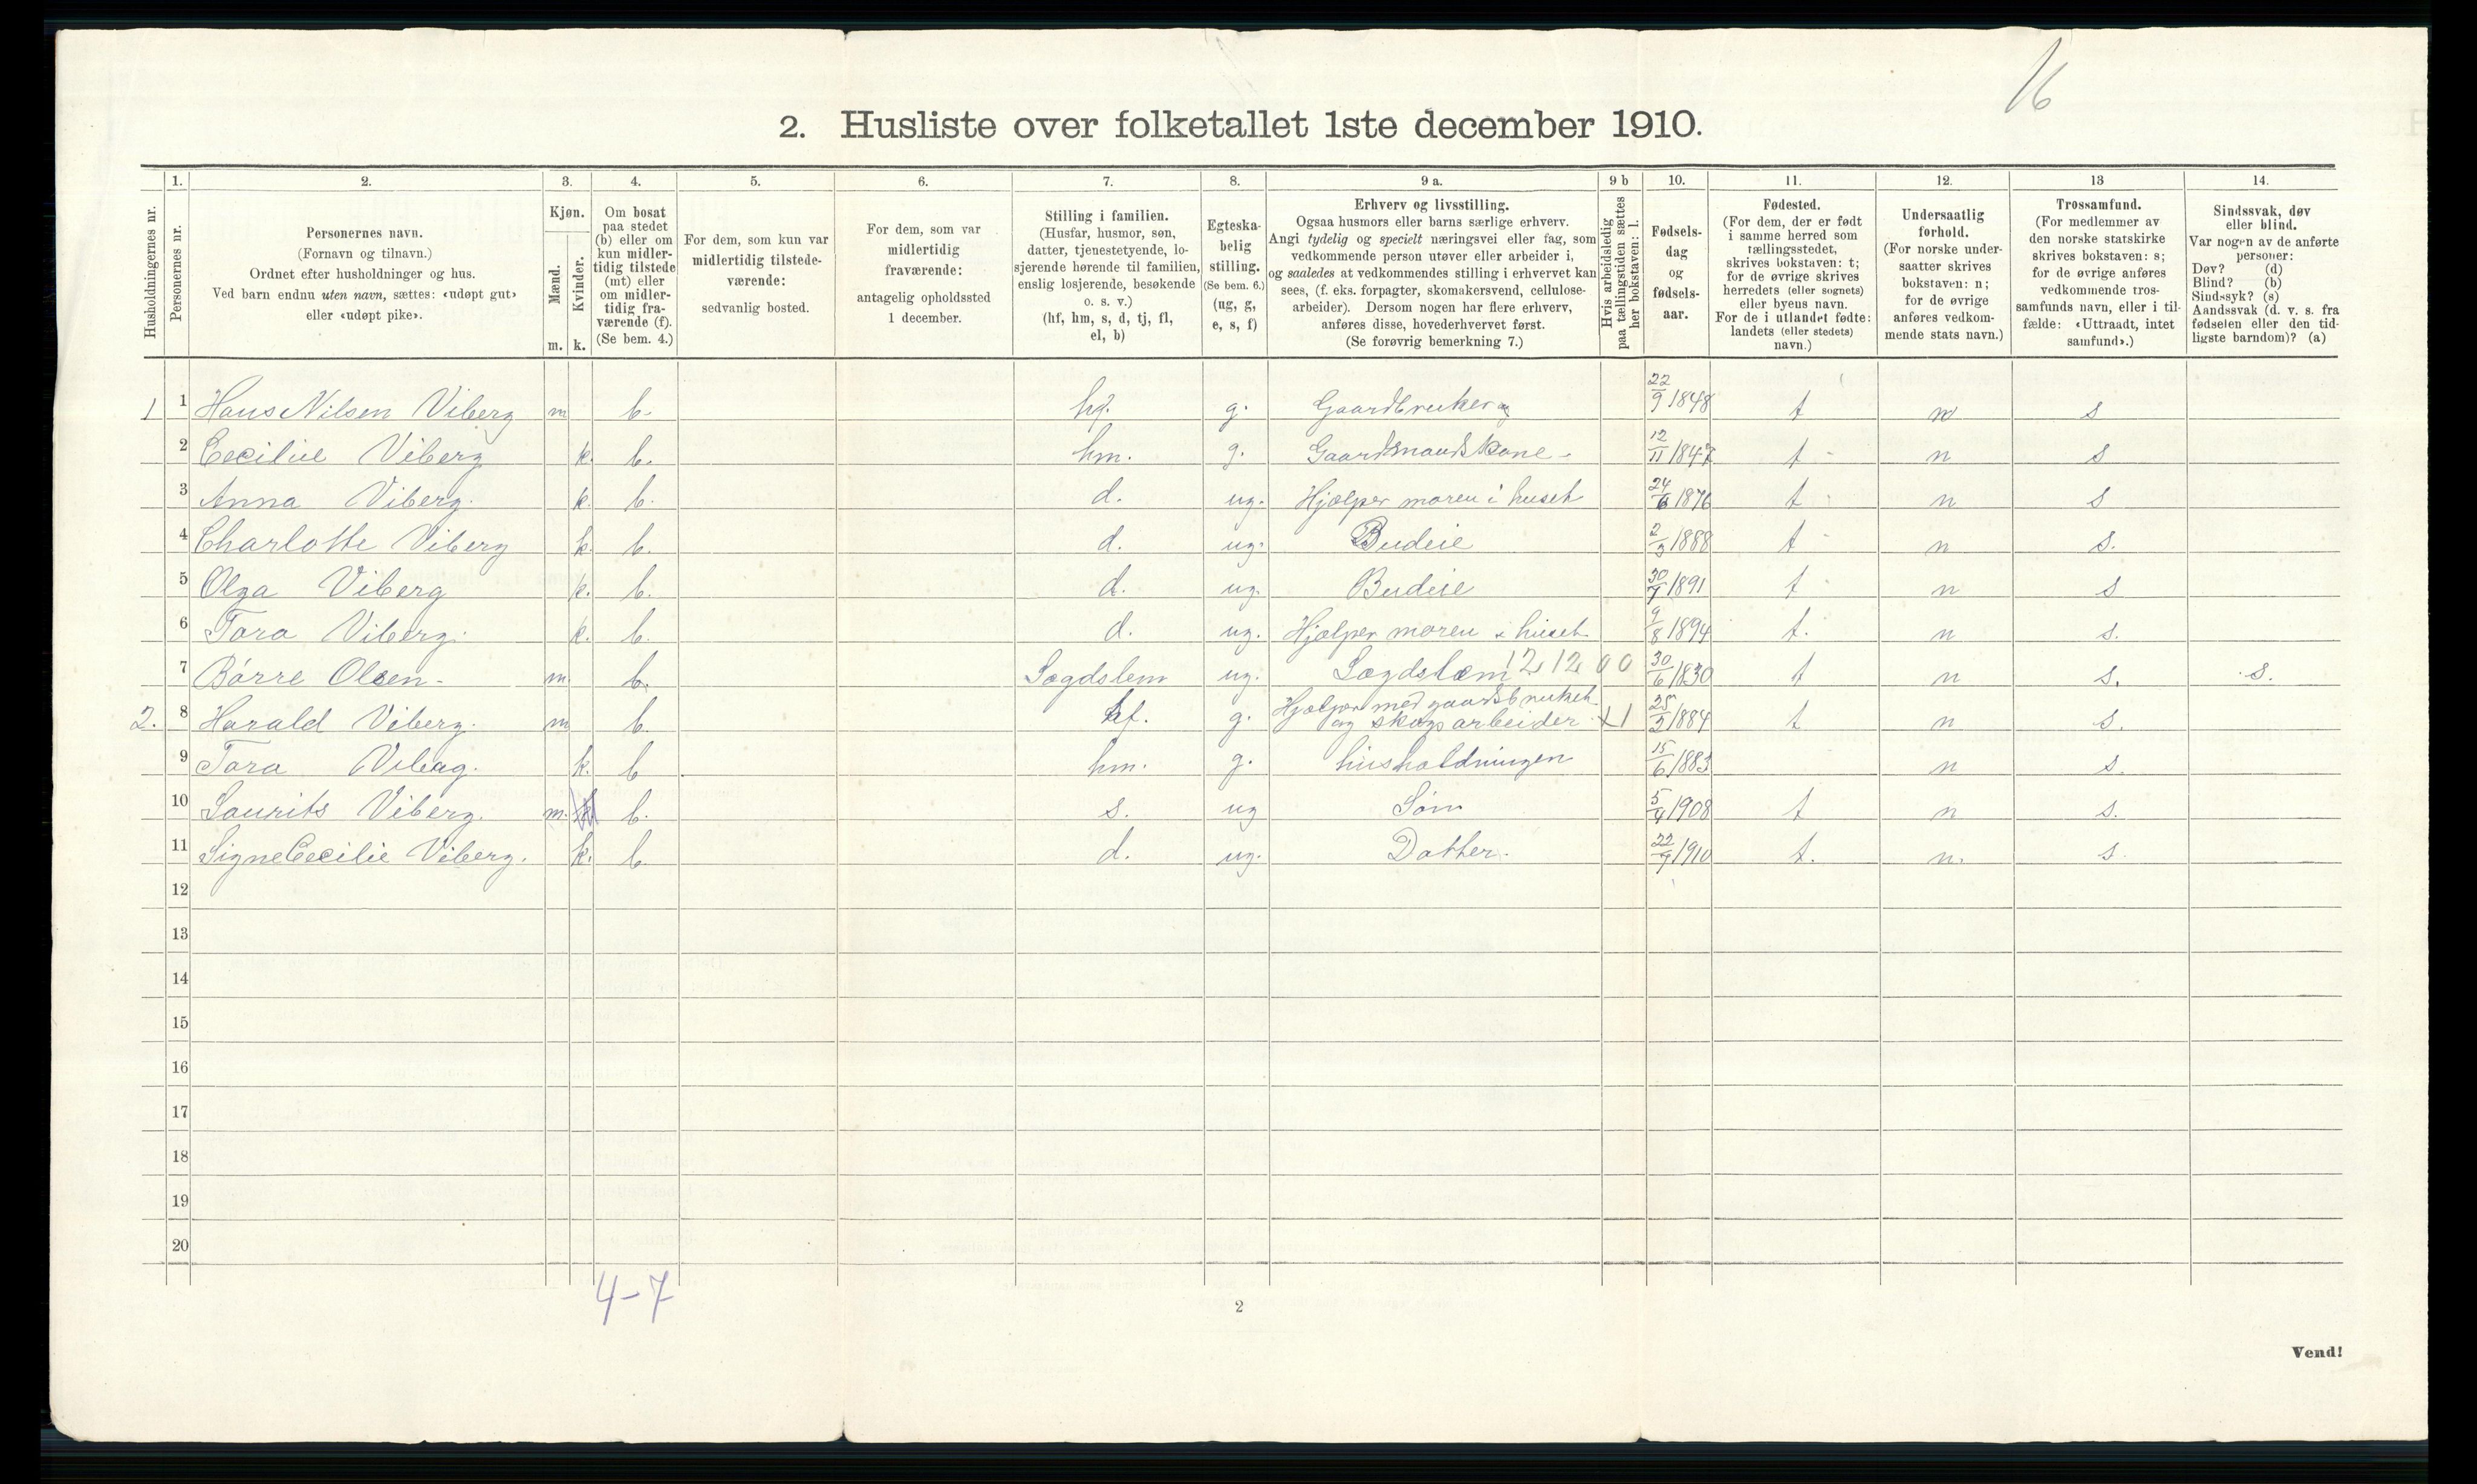 16
2. Husliste over folketallet 1ste december 1910.
Husholdningernes nr.
1.
Personernes nr.
2.
Personernes navn.
(Fornavn og tilnavn.)
Ordnet efter husholdninger og hus.
Ved barn endnu uten navn, sættes: «udøpt gut»
eller «udøpt pike».
3.
Kjøn.
Mænd.
Kvinder.
m. k.
4.
Om bosat
paa stedet
(b) eller om
kun midler-
tidig tilstede
(mt) eller
om midler-
tidig fra-
værende (f).
(Se bem. 4.)
5.
For dem, som kun var
midlertidig tilstede-
værende:
sedvanlig bosted.
6.
For dem, som var
midlertidig
fraværende:
antagelig opholdssted
1 december.
7.
Stilling i familien.
(Husfar, husmor, søn,
datter, tjenestetyende, lo-
sjerende hørende til familien,
enslig losjerende, besøkende
o. s. v.)
(hf, hm, s, d, tj, fl,
el, b)
8.
Egteska-
belig
stilling.
(Se bem. 6.)
(ug, g,
e, s, f)
9 a.
Erhverv og livsstilling.
Ogsaa husmors eller barns særlige erhverv.
Angi tydelig og specielt næringsvei eller fag, som
vedkommende person utøver eller arbeider i,
og saaledes at vedkommendes stilling i erhvervet kan
sees, (f. eks. forpagter, skomakersvend, cellulose-
arbeider). Dersom nogen har flere erhverv,
anføres disse, hovederhvervet først.
(Se forøvrig bemerkning 7.)
9 b
Hvis arbeidsledig
paa tællingstiden sættes
her bokstaven: l.
10.
Fødsels-
dag
og
fødsels-
aar.
11.
Fødested.
(For dem, der er født
i samme herred som
tællingsstedet,
skrives bokstaven: t;
for de øvrige skrives
herredets (eller sognets)
eller byens navn.
For de i utlandet fødte:
landets (eller stedets)
navn.)
12.
Undersaatlig
forhold.
(For norske under-
saatter skrives
bokstaven: n;
for de øvrige
anføres vedkom-
mende stats navn.)
13
Trossamfund.
(For medlemmer av
den norske statskirke
skrives bokstaven: s;
for de øvrige anføres
vedkommende tros-
samfunds navn, eller i til-
fælde: «Uttraadt, intet
samfund».)
14.
Sindssvak, døv
eller blind.
Var nogen av de anførte
personer:
Døv? (d)
Blind? (b)
Sindssyk? (s)
Aandssvak (d. v. s. fra
fødselen eller den tid-
ligste barndom)? (a)
1 1 Hans Nilsen Viberg m b. hf. g. Gaardbruker 22/9 1848 t n s
2 Cecilie Viberg k. b. hm. g. Gaardmandskone - 12/11 1847 t - n s
3 Anna Viberg. k. b. d. ug. Hjælper moren i huset 24/6 1876 t n s
4 Charlotte Viberg k. b. d. ug. Budeie 2/3 1888 t - n s.
5 Olga Viberg k. b. d. ug. Budeie 30/7 1891 t n s
6 Tora Viberg. k. b. d. ug. Hjælper moren i huset 9/8 1894 t. n s.
7 Børre Olsen - m. b. Lægdslem ug. Lægdslem 12 12 00 30/6 1830 t n s. s.
2. 8 Harald Viberg. m b. hf. g. Hjælper med gaardsbruket
og skogsarbeider x1 25/2 1884 t n s.
9 Tora Viberg. k. b hm. g. husholdningen 15/6 1883 n s.
10 Laurits Viberg. m. b. s. ug Søn 5/4 1908 t n s.
11 Signe Cecilie Viberg. k. b d. ug. Datter. 22/9 1910 t. n. s.
12
13
14
15
16
17
18
19
20
4-7
2
Vend!